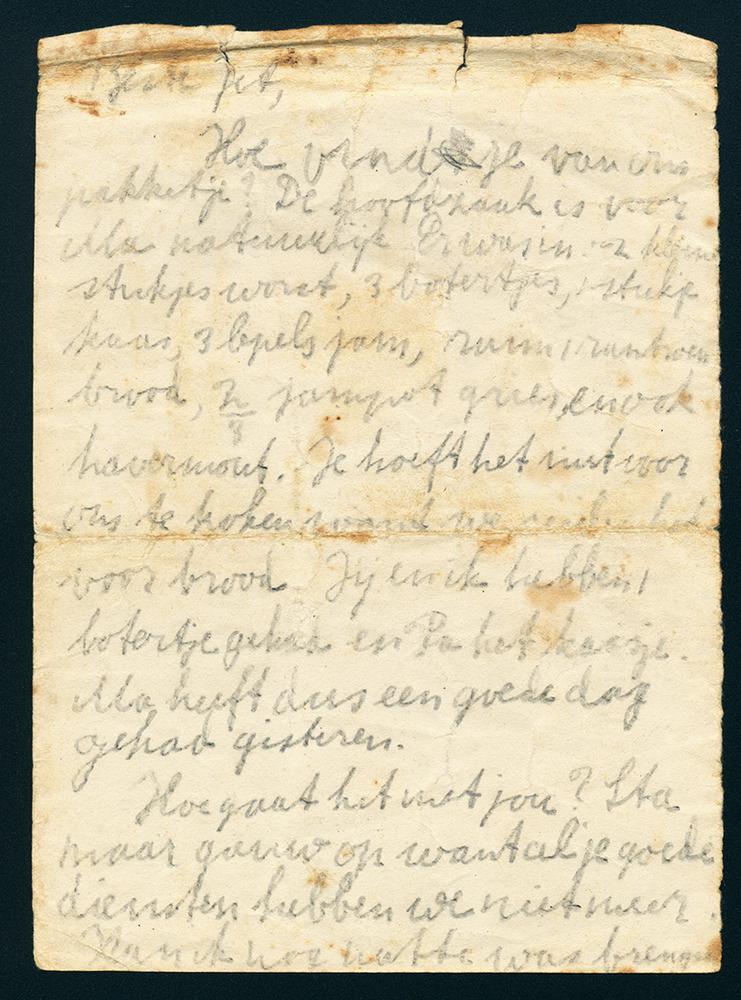 Beste Jet,
Hoe vind je van ons
pakketje? De hoofdzaak is voor
Ma natuurlijk Er was in: 2 kleine
stukjes worst, 3 botertjes, 1 stukje
kaas, 3 lepels jam, ruim 1 rantsoen
brood, 2/3 jampot gries, en ook
havermout. Je hoeft het niet voor
ons te koken want we ruilen het
voor brood Jij en ik hebben 1
botertje gehad en Pa het kaasje.
Ma heeft dus een goede dag
gehad gisteren.
Hoe gaat het met jou? Sta
maar gauw op want al je goede
diensten hebben we niet meer.
Kan ik nog natte was brengen